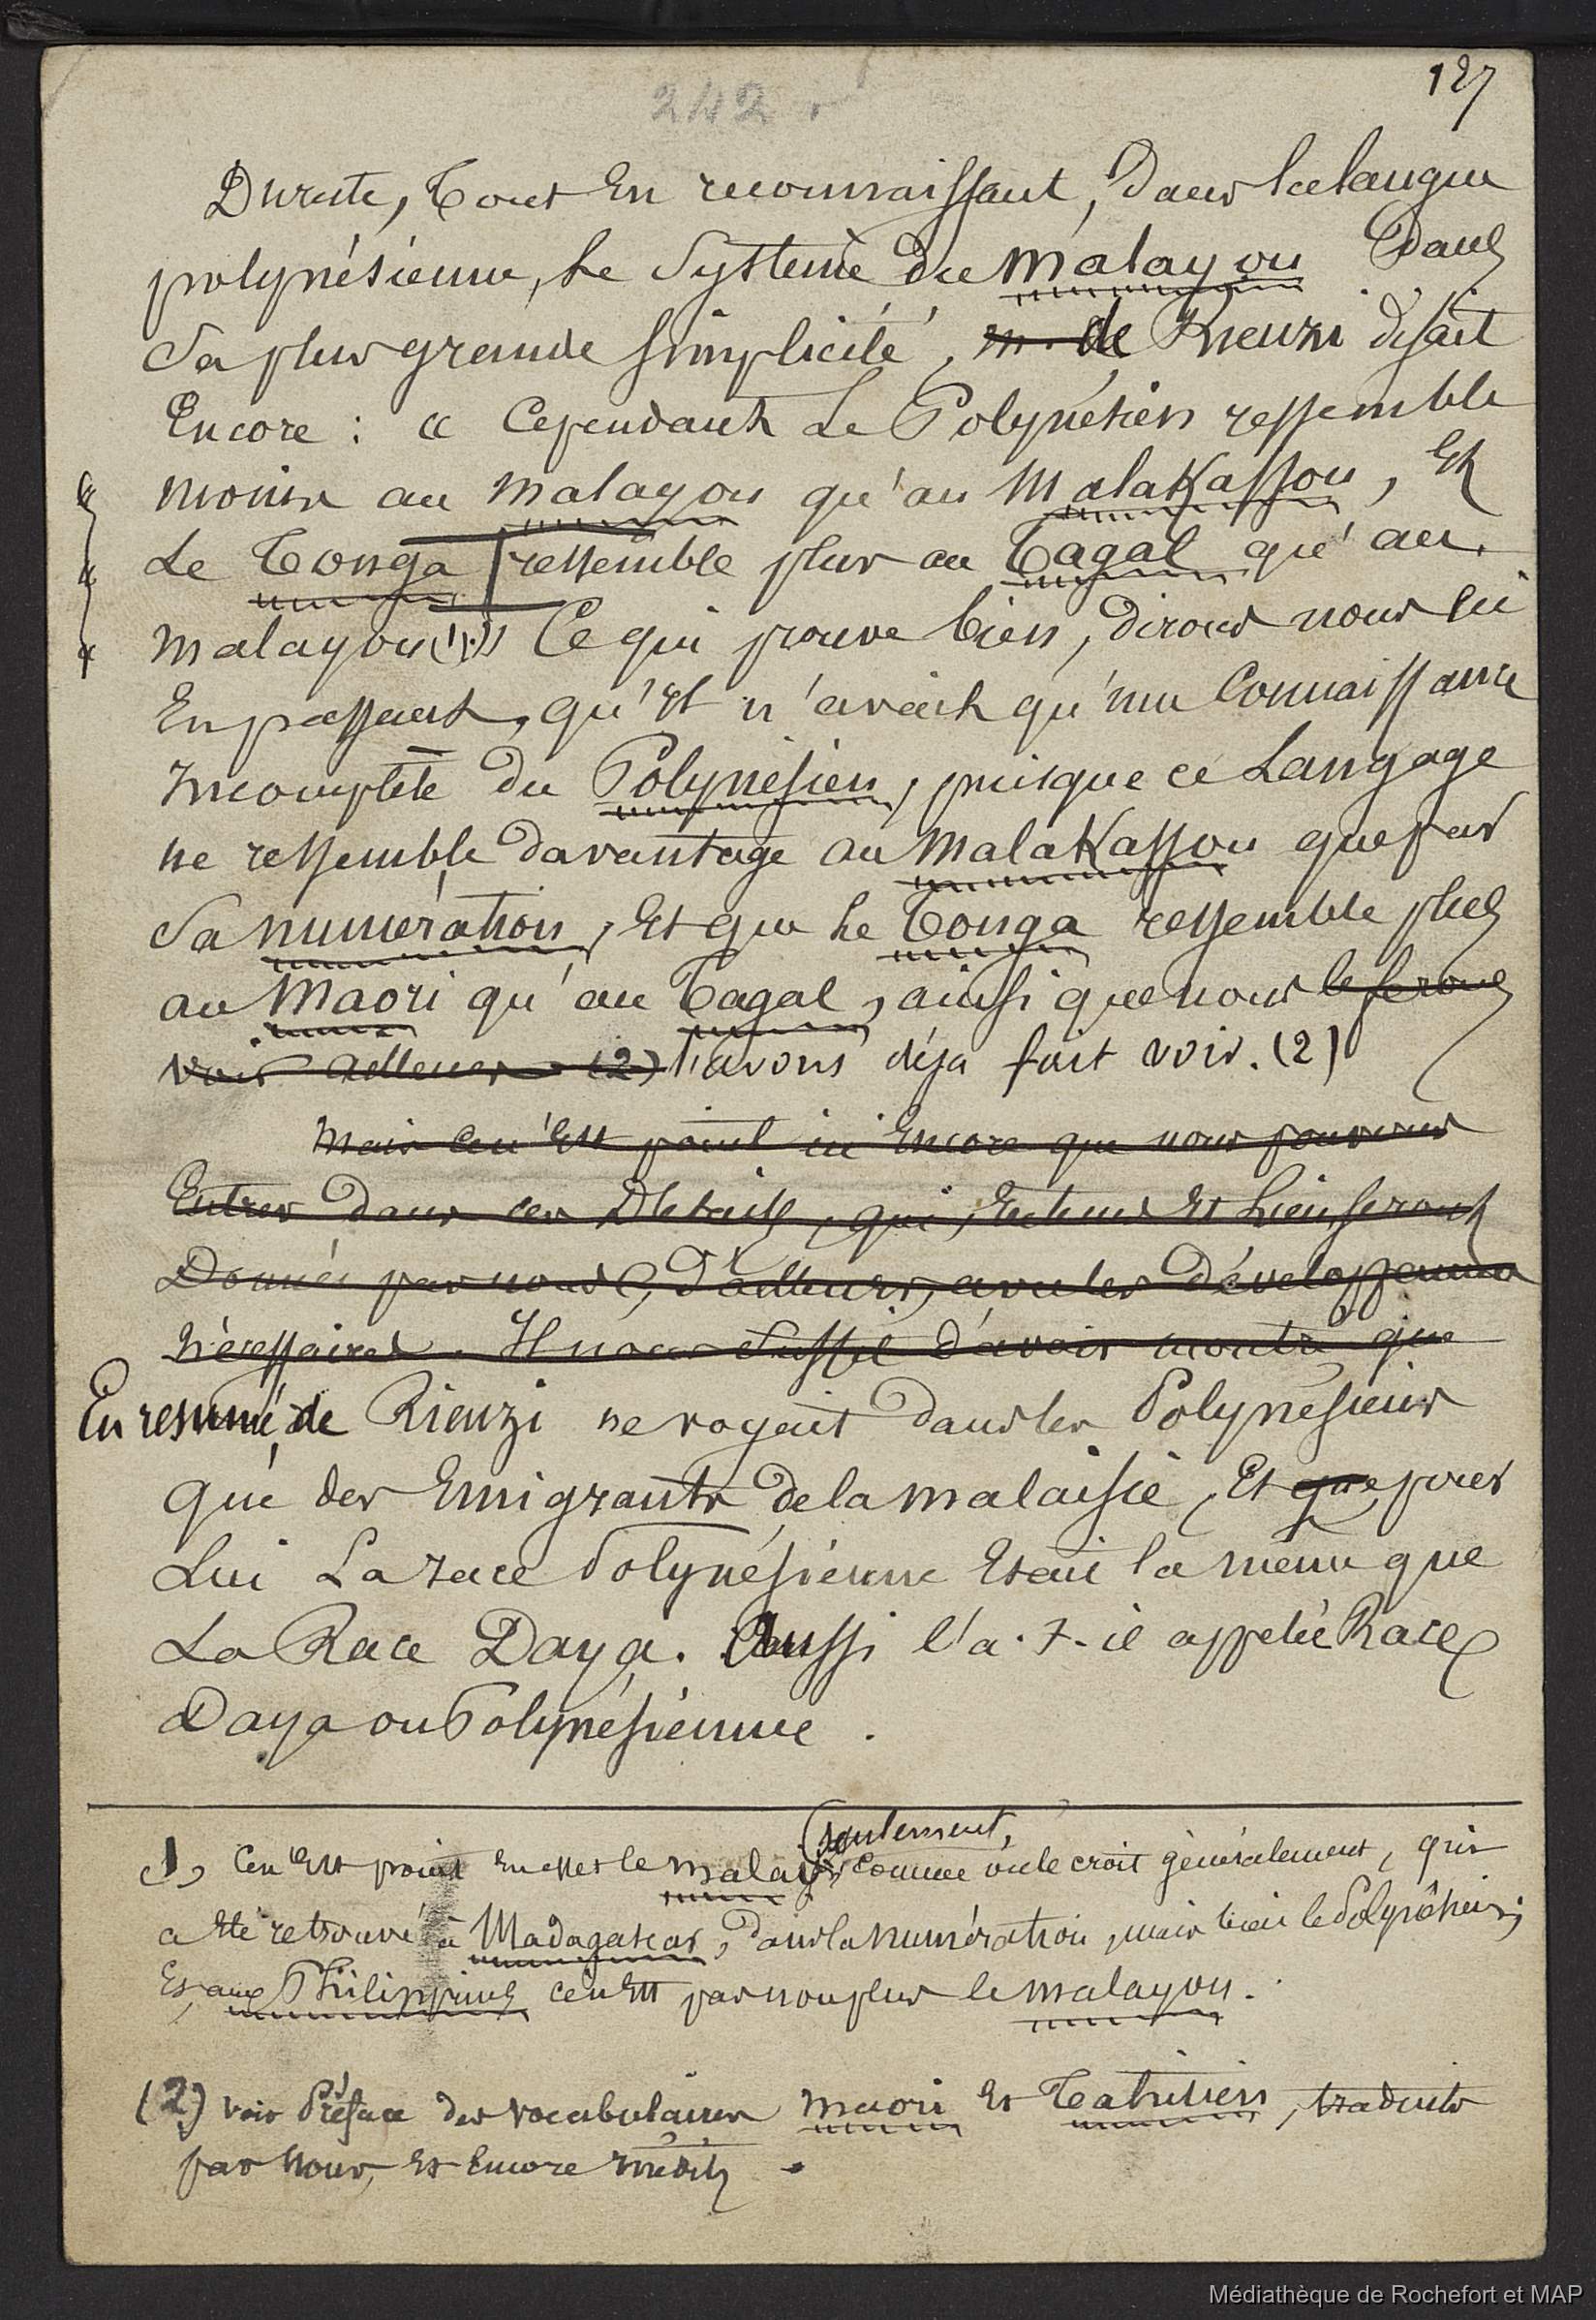 127
242
Du reste, tout en reconnaissant, dans la langue
polynésienne, le système du malayou dans
sa plus grande simplicité, m. de Rienzi disait
encore : « Cependant le Polynésien ressemble
moins au malayou qu'au malakassou, et
le Tonga ressemble plus au Tagal qu'au
malayou (1). » Ce qui prouve bien, dirons nous ici
en passant, qu'il n'avait qu'une connaissance
incomplète du Polynésien, puisque ce langage
ne ressemble davantage au malakassou que par
sa numération, et que le Tonga ressemble plus
au Maori qu'au Tagal, ainsi que nous le ferons
voir ailleurs (2) l'avons déja fait voir. (2)
Mais ce n'est point ici encore que nous pouvons
entrer dans ces détails, qui, en temps et lieu seront
donnés par nous, d'ailleurs, avec les développemens
nécessaires. Il nous suffit d'avoir montré que
En resumé, de Rienzi ne voyait dans les Polynésiens
que des émigrants de la malaisie, et que pour
lui la race Polynésienne était la même que
la Race Daya. Aussi l'a-t-il appelée Race
Daya ou Polynésienne.
seulement,
(1) Ce n'est point en effet le malayou, comme on le croit généralement, qui
a été retrouvé à Madagascar, dans la numération, mais bien le Polynésien ;
et, aux Philippines ce n'est pas non plus le malayou.
(2) voir Préface des vocabulaires maori et Tahitien, traduits
par nous, et encore inédits.
Médiathèque de Rochefort et MAP